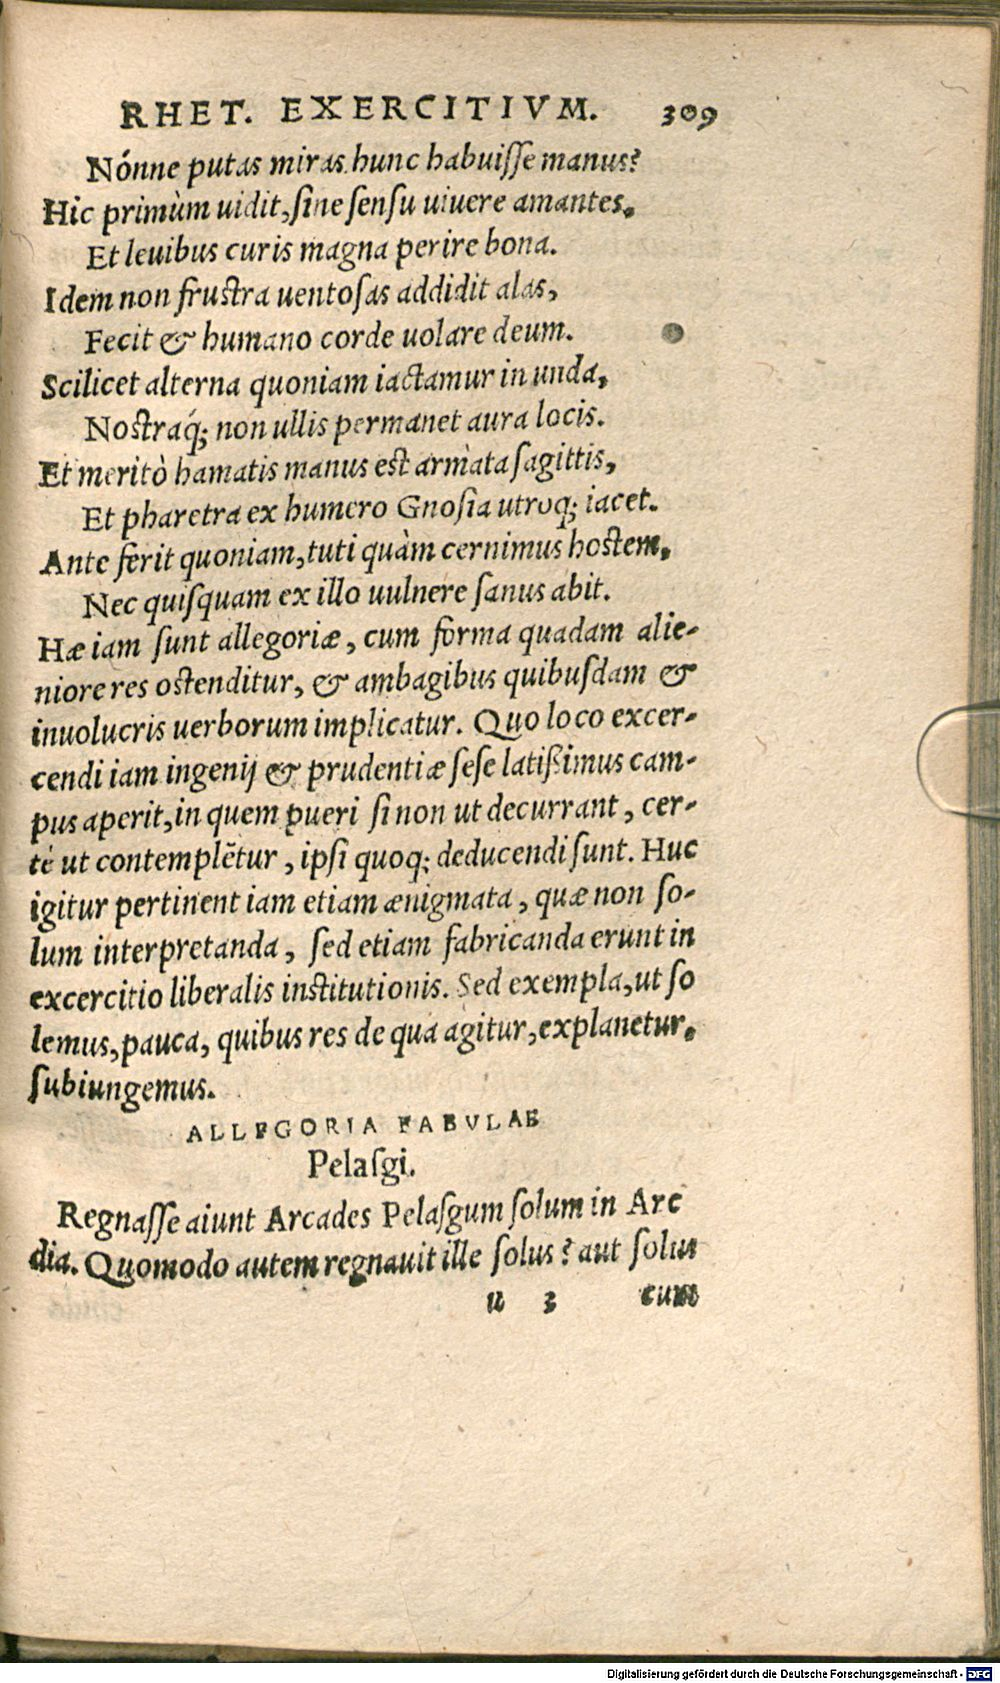 RHET. EXERCITIVM. 309
Nónne putas miras hunc habuiſſe manus?
Hic primùm uidit, ſine ſenſu uiuere amantes.
Et leuibus curis magna perire bona.
Idem non fruſtra uentoſas addidit alas,
Fecit & humano corde uolare deum.
Scilicet alterna quoniam iactamur in unda,
Noſtraq́; non ullis permanet aura locis.
Et meritò hamatis manus eſt armata ſagittis,
Et pharetra ex humero Gnoſia utroq; iacet.
Ante ferit quoniam, tuti quàm cernimus hoſtem,
Nec quiſquam ex illo uulnere ſanus abit.
Hæ iam ſunt allegoriæ, cum forma quadam alie-
niore res oſtenditur, & ambagibus quibuſdam &
inuolucris uerborum implicatur. Quo loco excer-
cendi iam ingenij & prudentiæ ſeſe latißimus cam-
pus aperit, in quem pueri ſi non ut decurrant, cer-
tè ut contemplẽtur, ipſi quoq; deducendi ſunt. Huc
igitur pertinent iam etiam ænigmata, quæ non ſo-
lum interpretanda, ſed etiam fabricanda erunt in
excercitio liberalis inſtitutionis. Sed exempla, ut ſo
lemus, pauca, quibus res de qua agitur, explanetur,
ſubiungemus.
ALLEGORIA FABVLAE
Pelaſgi.
Regnaſſe aiunt Arcades Pelaſgum ſolum in Arc
dia. Quomodo autem regnauit ille ſolus? aut ſolus
u 3 cum
Digitalisierung gefördert durch die Deutsche Forschungsgemeinschaft - DFG